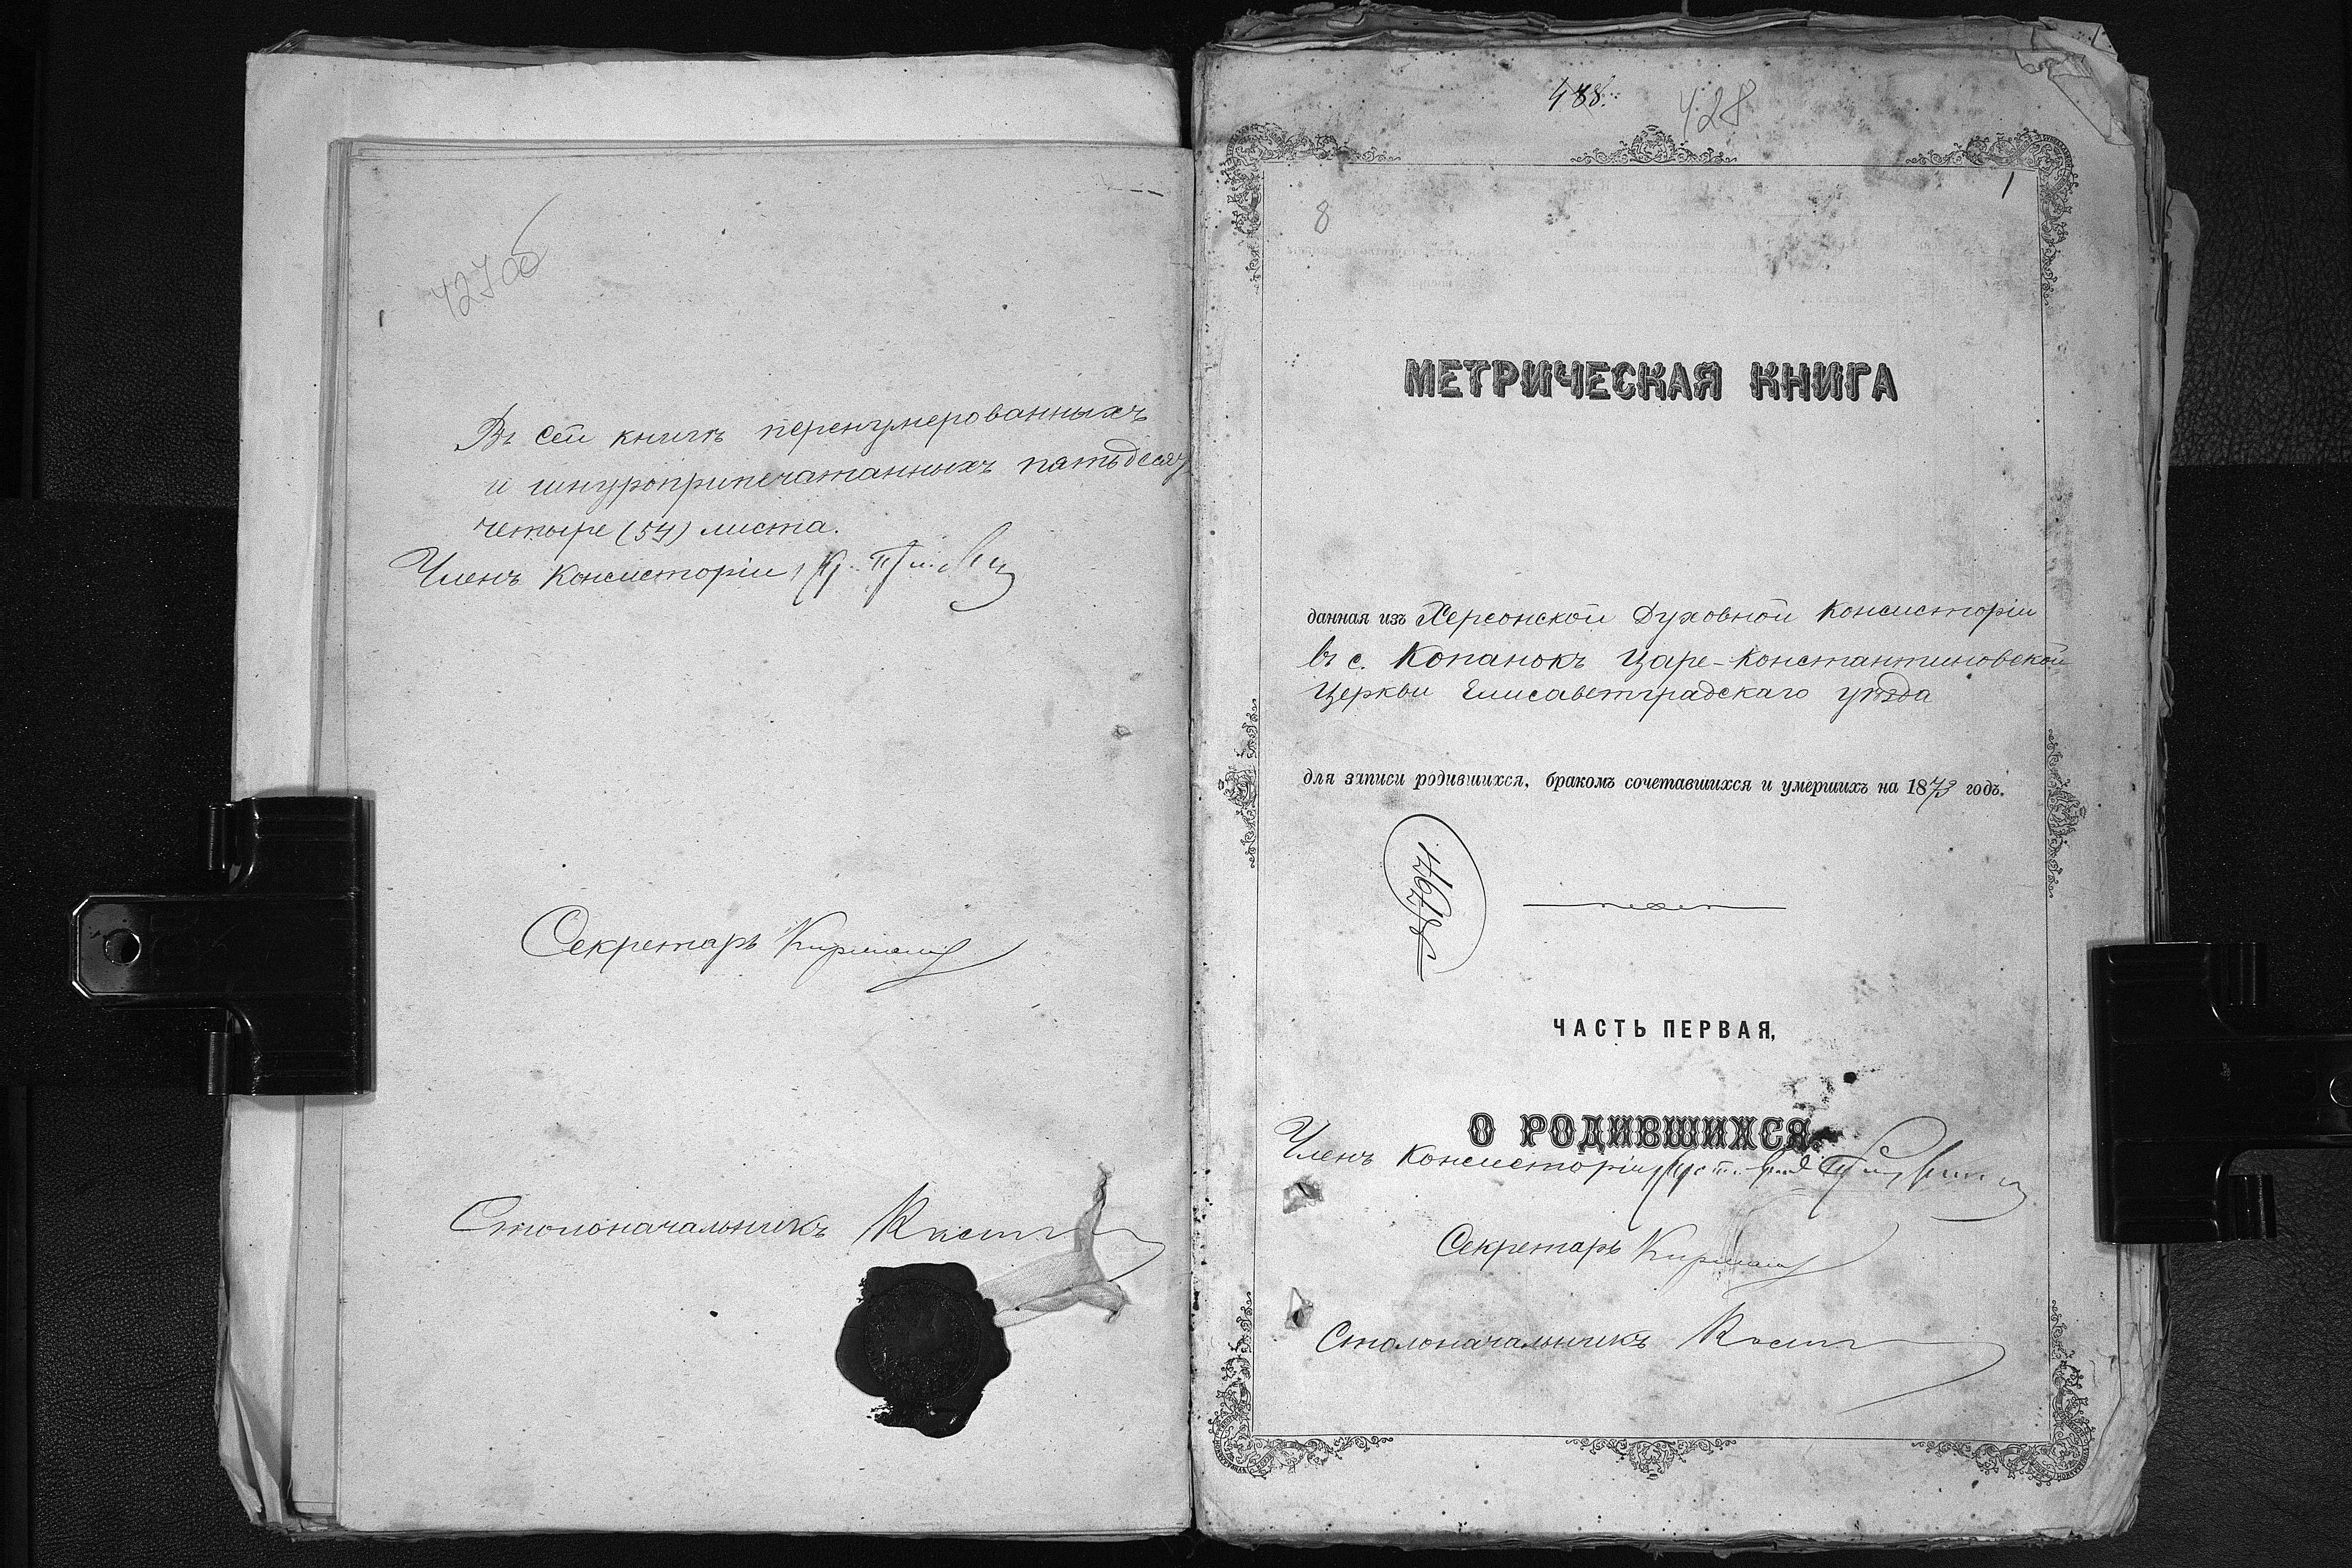 427об
Въ сей книгѣ перенумерованныхъ
и шнуроприпечатанныхъ пятьдесят
четыре (54) листа.
Членъ Консисторіи
Секретарь
Столоначальникъ
488.
428
1
8
МЕТРИЧЕСКАЯ КНИГА
данная изъ Херсонской Духовной Консисторіи
въ с. Копанокъ Царе-Константиновской
Церкви Елисаветградскаго уѣзда
для записи родившихся, бракомъ сочетавшихся и умершихъ на 1873 годъ.
№7671
ЧАСТЬ ПЕРВАЯ,
О РОДИВШИХСЯ.
Членъ Консисторіи
Секретарь
Столоначальникъ